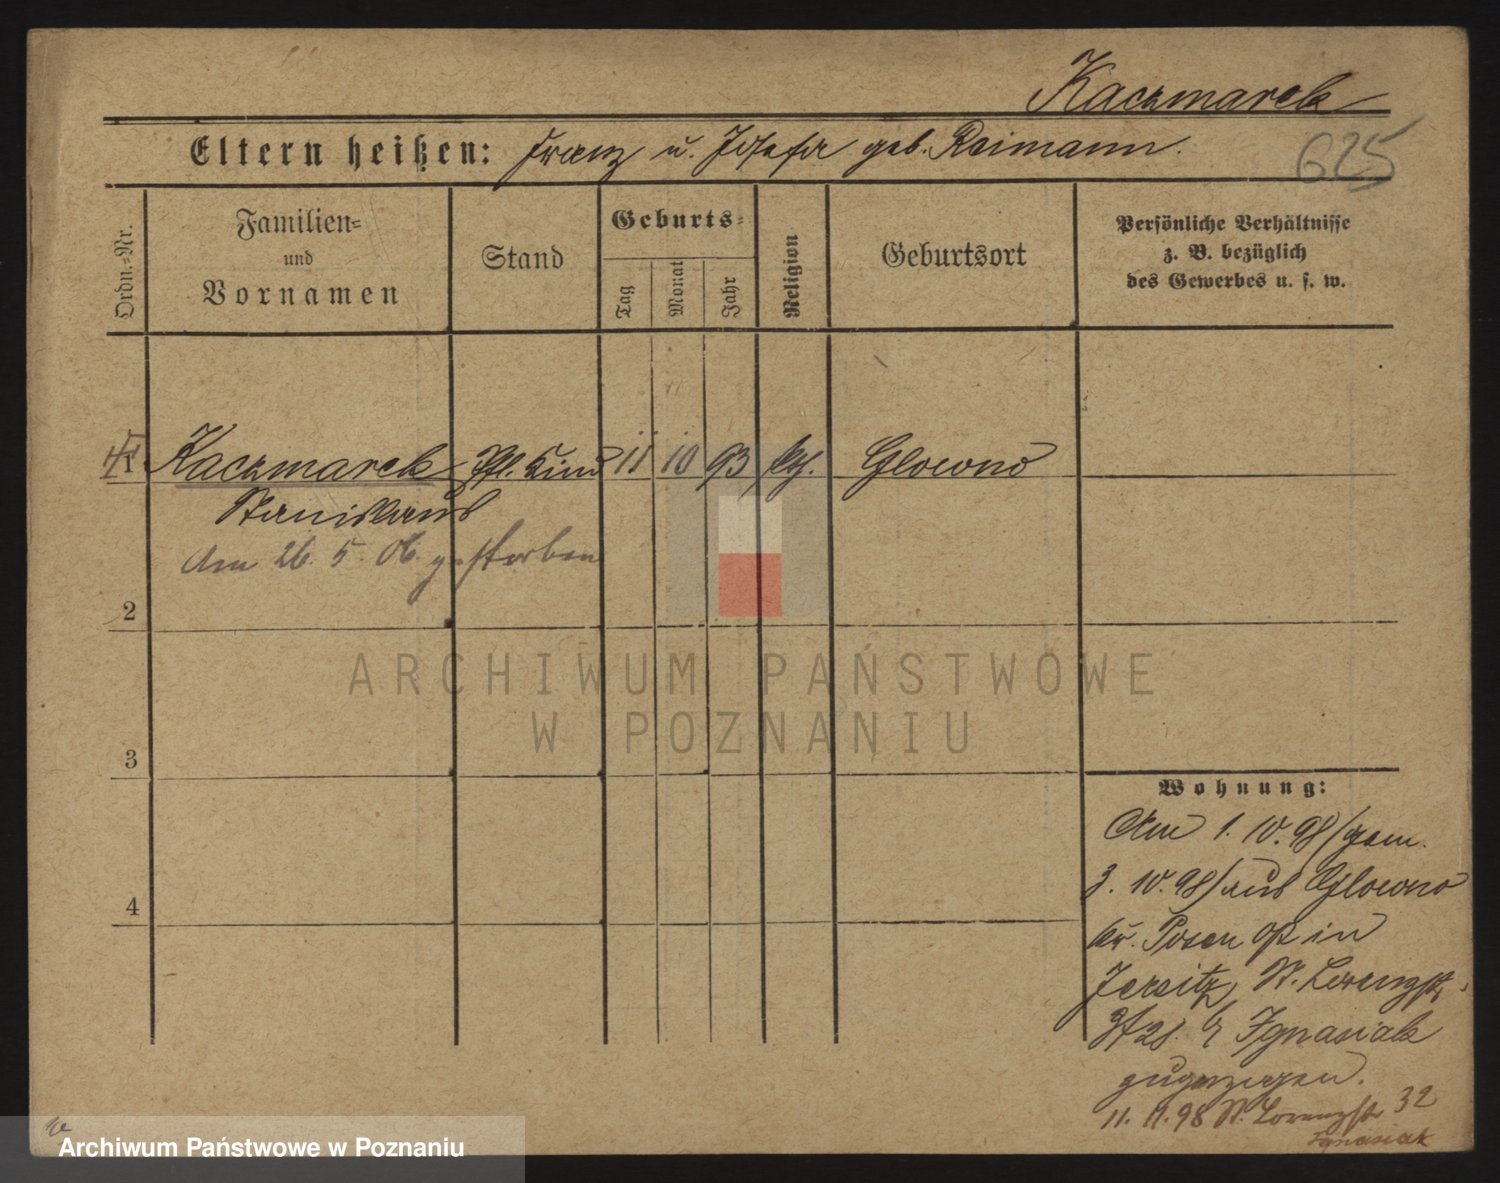 Kaczmarek
Eltern heißen: Franz u. Josefa geb. Reimann.
625
Ordn.-Nr.
Familien-
und
Vornamen
Stand
Geburts-
Tag
Monat
Jahr
Religion
Geburtsort
Persönliche Verhältnisse
z. B. bezüglich
des Gewerbes u. s. w.
1 Kaczmarek Pfl. Kind 11 10 93 kth. Glowno
Stanislaus
Am 26. 5. 06. gestorben
2
3
4
Wohnung:
Am 1. 10. 98 /gem.
3. 10. 98/ aus Glowno
Kr. Posen Ost in
Jersitz, St. Lorenzstr.
b/ Ignasiak
zugezogen.
11. 11. 98 St. Lorenzstr 32
Ignasiak
ARCHIWUM PAŃSTWOWE
W POZNANIU
Archiwum Państwowe w Poznaniu